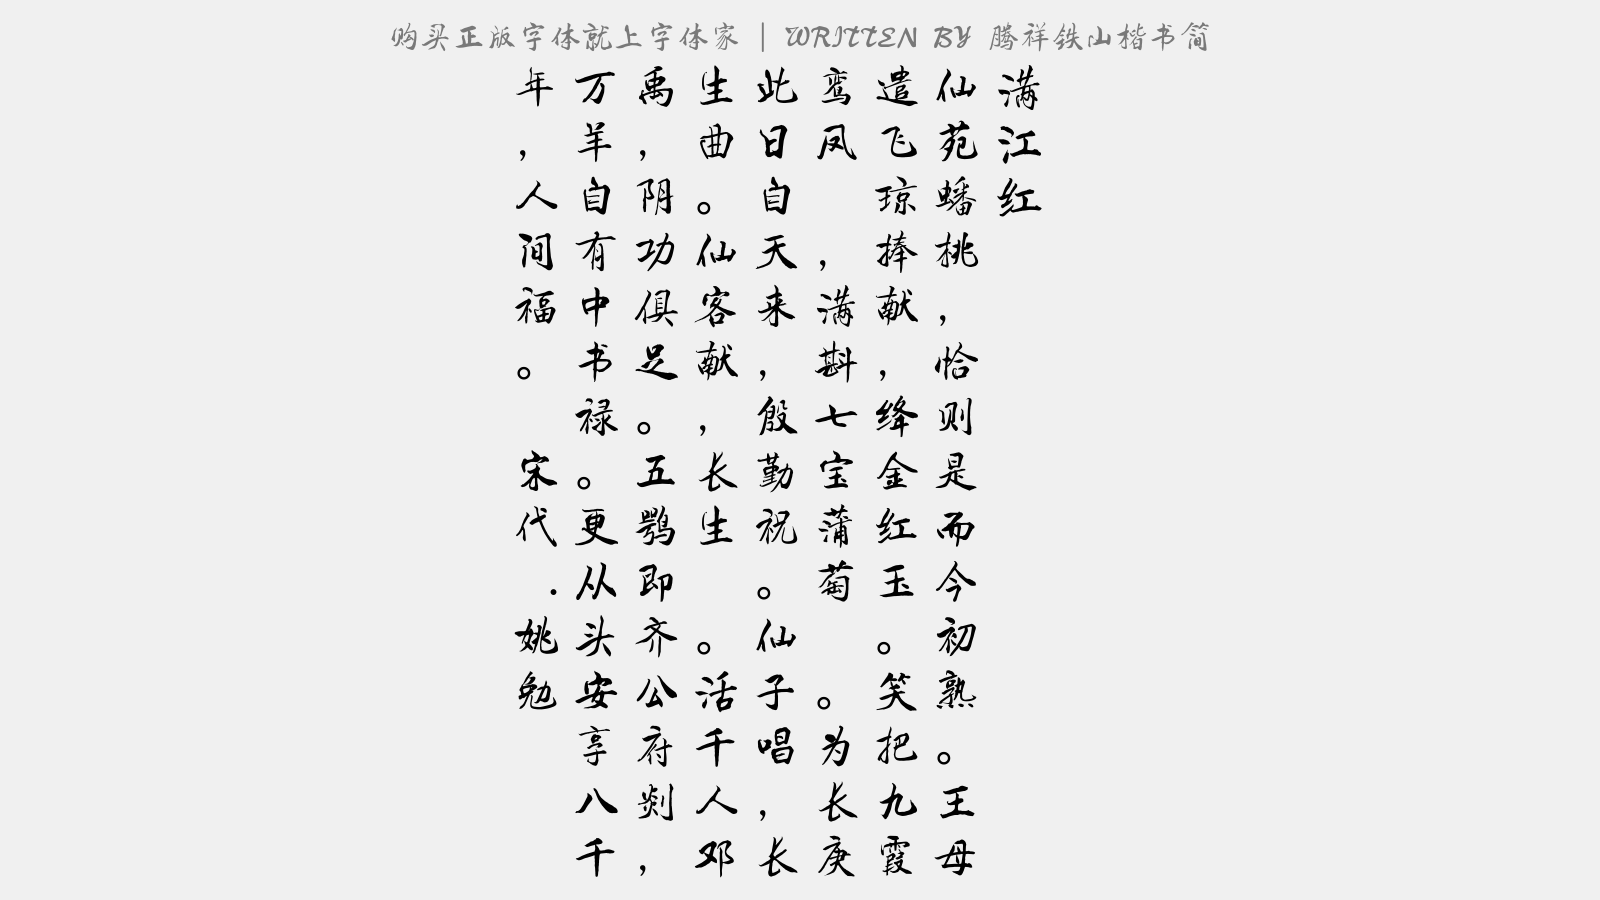 购买正版字体就上字体家 | WRITTEN BY 腾祥铁山楷书简
满江红
仙苑蟠桃，恰则是而今初熟。王母
遣飞琼捧献，绛金红玉。笑把九霞
鸾凤 ，满斟七宝蒲萄 。为长庚
此日自天来，殷勤祝。仙子唱，长
生曲。仙客献，长生 。活千人邓
禹，阴功俱足。五鹗即齐公府剡，
万羊自有中书禄。更从头安享八千
年，人间福。 宋代.姚勉